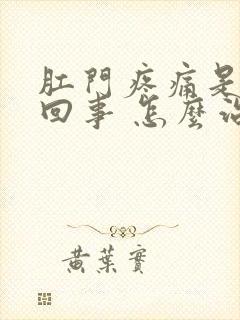 肛門疼痛是
回事 怎麼治
黃葉實